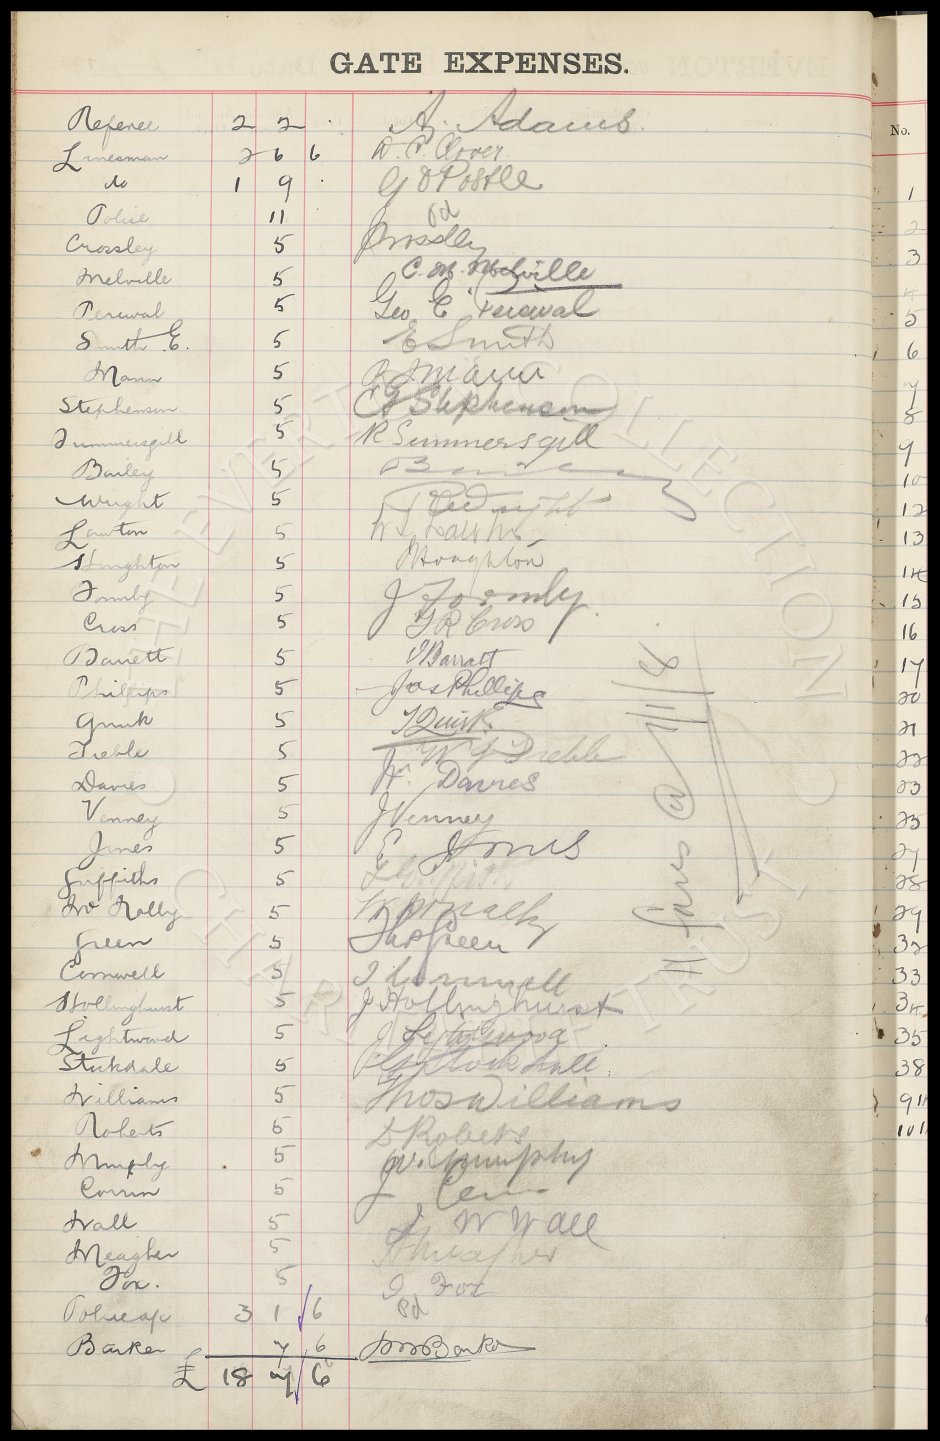 GATE EXPENSES.
Referee 2 2 . A. Adams.
Linesman 2 6 6
do 1 9 .
Police 11 Pd
Crossley 5 J Crossley
Melville 5 C. M. Melville
Percival 5 Geo E Percival
Smith E. 5 E Smith
Mann 5 Mann
Stephenson 5 Stephenson
Summersgill 5 R Summersgill
Bailey 5
Wright 5 Wright
Lawton 5
Houghton 5 Houghton
Formby 5 J Formby.
Cross 5 Cross
Barrett 5 Barratt
Phillips 5 Jas Phillips
Quirk 5 Quirk.
Treble 5 Treble
Davies 5 Davies
Venney 5 J Venney
Jones 5 E Jones
Griffiths 5
McNally 5
Green 5 Thos Green
Cornwell 5 Cornwell
Hollinghurst 5 J Hollinghurst
Lightwood 5 J Lightwood
Stockdale 5
Williams 5 Thos Williams
Roberts 5 Roberts
Murphy 5 Murphy
Corrin 5
Wall 5 J W Wall
Meagher 5 Meagher
Fox. 5 J Fox
3 1 6 Pd
Barker 7 6 Barker
£ 18 7 6
fares @ 1/1/8
EVERTON COLLECTION CHARITABLE TRUST
No.
1
2
3
4
5
6
7
8
9
10
12
13
14
15
16
17
20
21
22
23
25
27
28
29
32
33
34
35
38